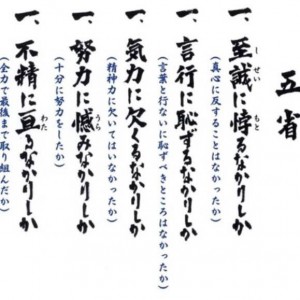 五省
しせい もと
一、至誠に悖るなかりしか
(真心に反することはなかったか)
一、言行に恥ずるなかりしか
(言葉と行ないに恥ずべきところはなかったか)
一、気力に欠くるなかりしか
(精神力に欠いてはいなかったか)
うら
一、努力に憾みなかりしか
(十分に努力をしたか)
わた
一、不精に亘るなかりしか
(全力で最後まで取り組んだか)